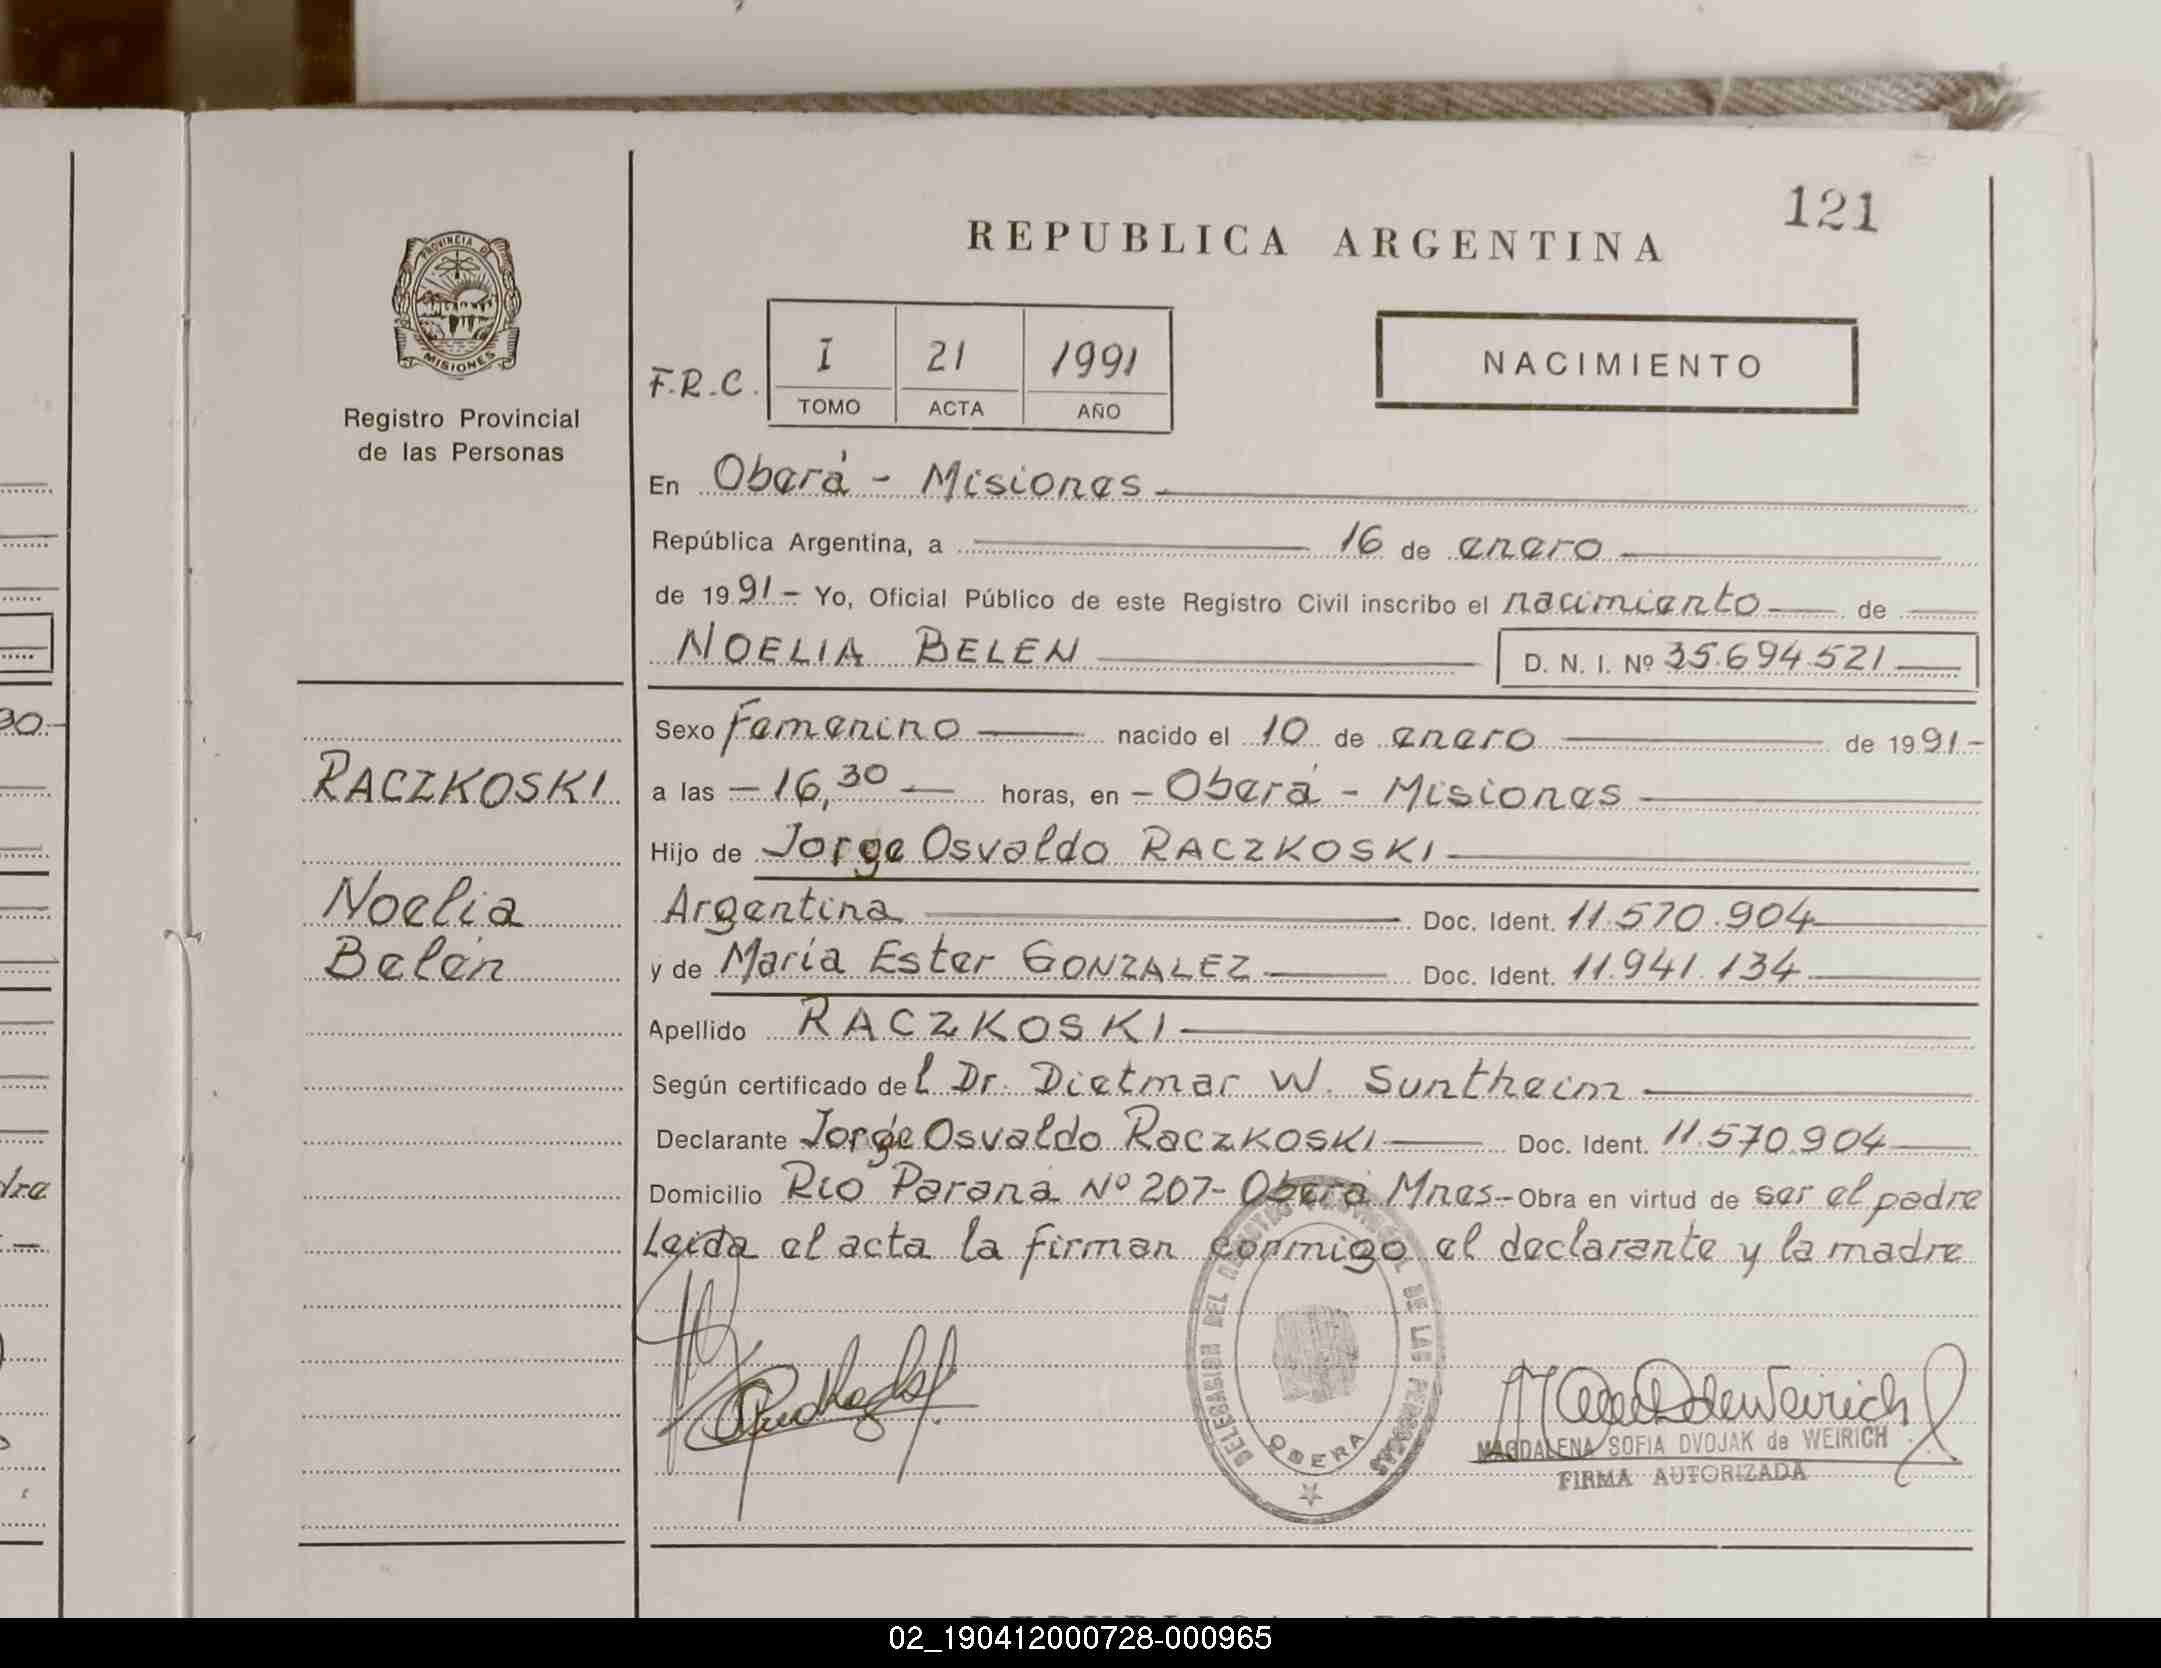 121
REPUBLICA ARGENTINA
PROVINCIA DE
MISIONES
Registro Provincial
de las Personas
F.R.C. I 21 1991
TOMO ACTA AÑO
NACIMIENTO
En Oberá - Misiones
República Argentina, a 16 de enero
de 1991- Yo, Oficial Público de este Registro Civil inscribo el nacimiento de
NOELIA BELEN D. N. I. Nº 35.694.521
Sexo Femenino nacido el 10 de enero de 1991-
a las - 16,30 horas, en - Oberá - Misiones
Hijo de Jorge Osvaldo RACZKOSKI
Argentina Doc. Ident. 11.570.904
y de María Ester GONZALEZ Doc. Ident. 11.941.134
Apellido RACZKOSKI
Según certificado del Dr. Dietmar W. Suntheim
Declarante Jorge Osvaldo RACZKOSKI Doc. Ident. 11.570.904
Domicilio Río Paraná Nº 207- Oberá Mnes- Obra en virtud de ser el padre
Leída el acta la firman conmigo el declarante y la madre
RACZKOSKI
Noelia
Belén
DELEGACION DEL REGISTRO PROVINCIAL DE LAS PERSONAS
OBERA
MAGDALENA SOFIA DVOJAK de WEIRICH
FIRMA AUTORIZADA
REPUBLICA ARGENTINA
02_190412000728-000965